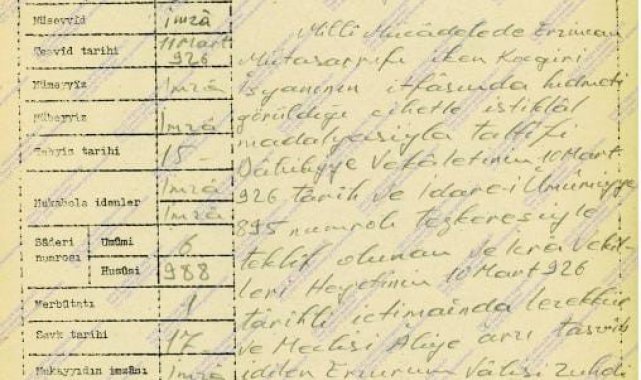 Müseyyid İmzâ
Tesvid tarihi 11 Mart
926
Mümeyyiz İmzâ
Mübeyyiz İmzâ
Tebyiz tarihi 15-
Mukabele idenler İmzâ
İmzâ
Sâderi
numrosı
Umûmi 6
Husûsi 988
Merbûtatı 1
Sevk tarihi 17
Mukayyidin imzâsı İmzâ
Milli Mücâdelede Erzincan
Mutasarrıfı iken Koçgiri
İsyanının itfâsında hıdmeti
görüldiği cihetle istiklâl
madalyasiyla taltifi
Dâhiliyye Vekâletinin 10 Mart
926 târih ve İdare-i Umûmiyye
895 numrolı tezkeresiyle
teklif olunan ve İcrâ Vekil-
leri Heyetinin 10 Mart 926
târihli ictimaında tezekkür
ve Meclisi Âliye arzı tasvib
idilen Erzurum Vâlisi Zühdi